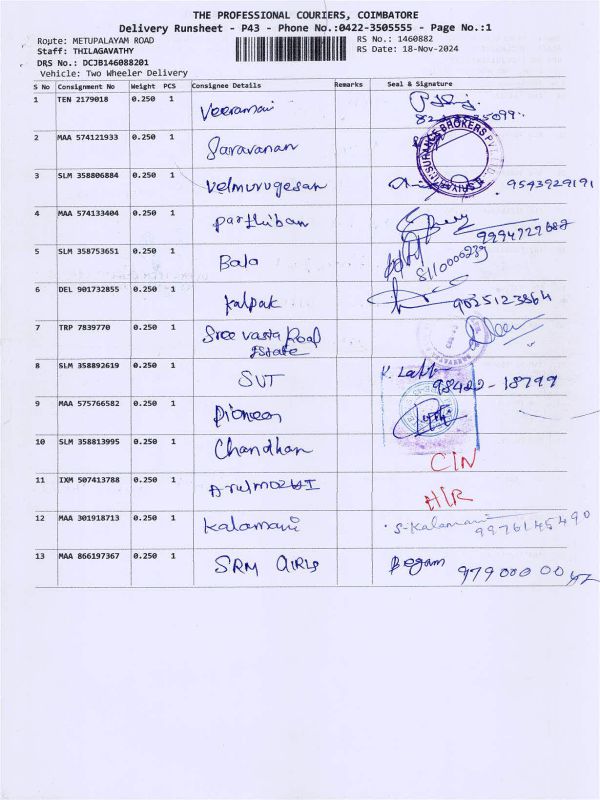 THE PROFESSIONAL COURIERS, COIMBATORE
Delivery Runsheet - P43 - Phone No.:0422-3505555 - Page No.:1
Route: METUPALAYAM ROAD RS No.: 1460882
Staff: THILAGAVATHY RS Date: 18-Nov-2024
DRS No.: DCJB146088201
Vehicle: Two Wheeler Delivery
S No Consignment No Weight PCS Consignee Details Remarks Seal & Signature
1 TEN 2179018 0.250 1 Veeramani
2 MAA 574121933 0.250 1 Saravanan INSURANCE BROKERS PVT. LTD.
3 SLM 358806884 0.250 1 Velmurugesan 9543929191
4 MAA 574133404 0.250 1 Parthiban 9994722682
5 SLM 358753651 0.250 1 Bala 8110000239
6 DEL 901732855 0.250 1 Kalpak 9025123864
7 TRP 7839770 0.250 1 Sree vasta Road
Estate
8 SLM 358892619 0.250 1 SVT 98422-18799
9 MAA 575766582 0.250 1 Pioneer
10 SLM 358813995 0.250 1 Chandhan CIN
11 IXM 507413788 0.250 1 HIR
12 MAA 301918713 0.250 1 Kalamani S-Kalamani 9976145490
13 MAA 866197367 0.250 1 SRM GIRLS Begam